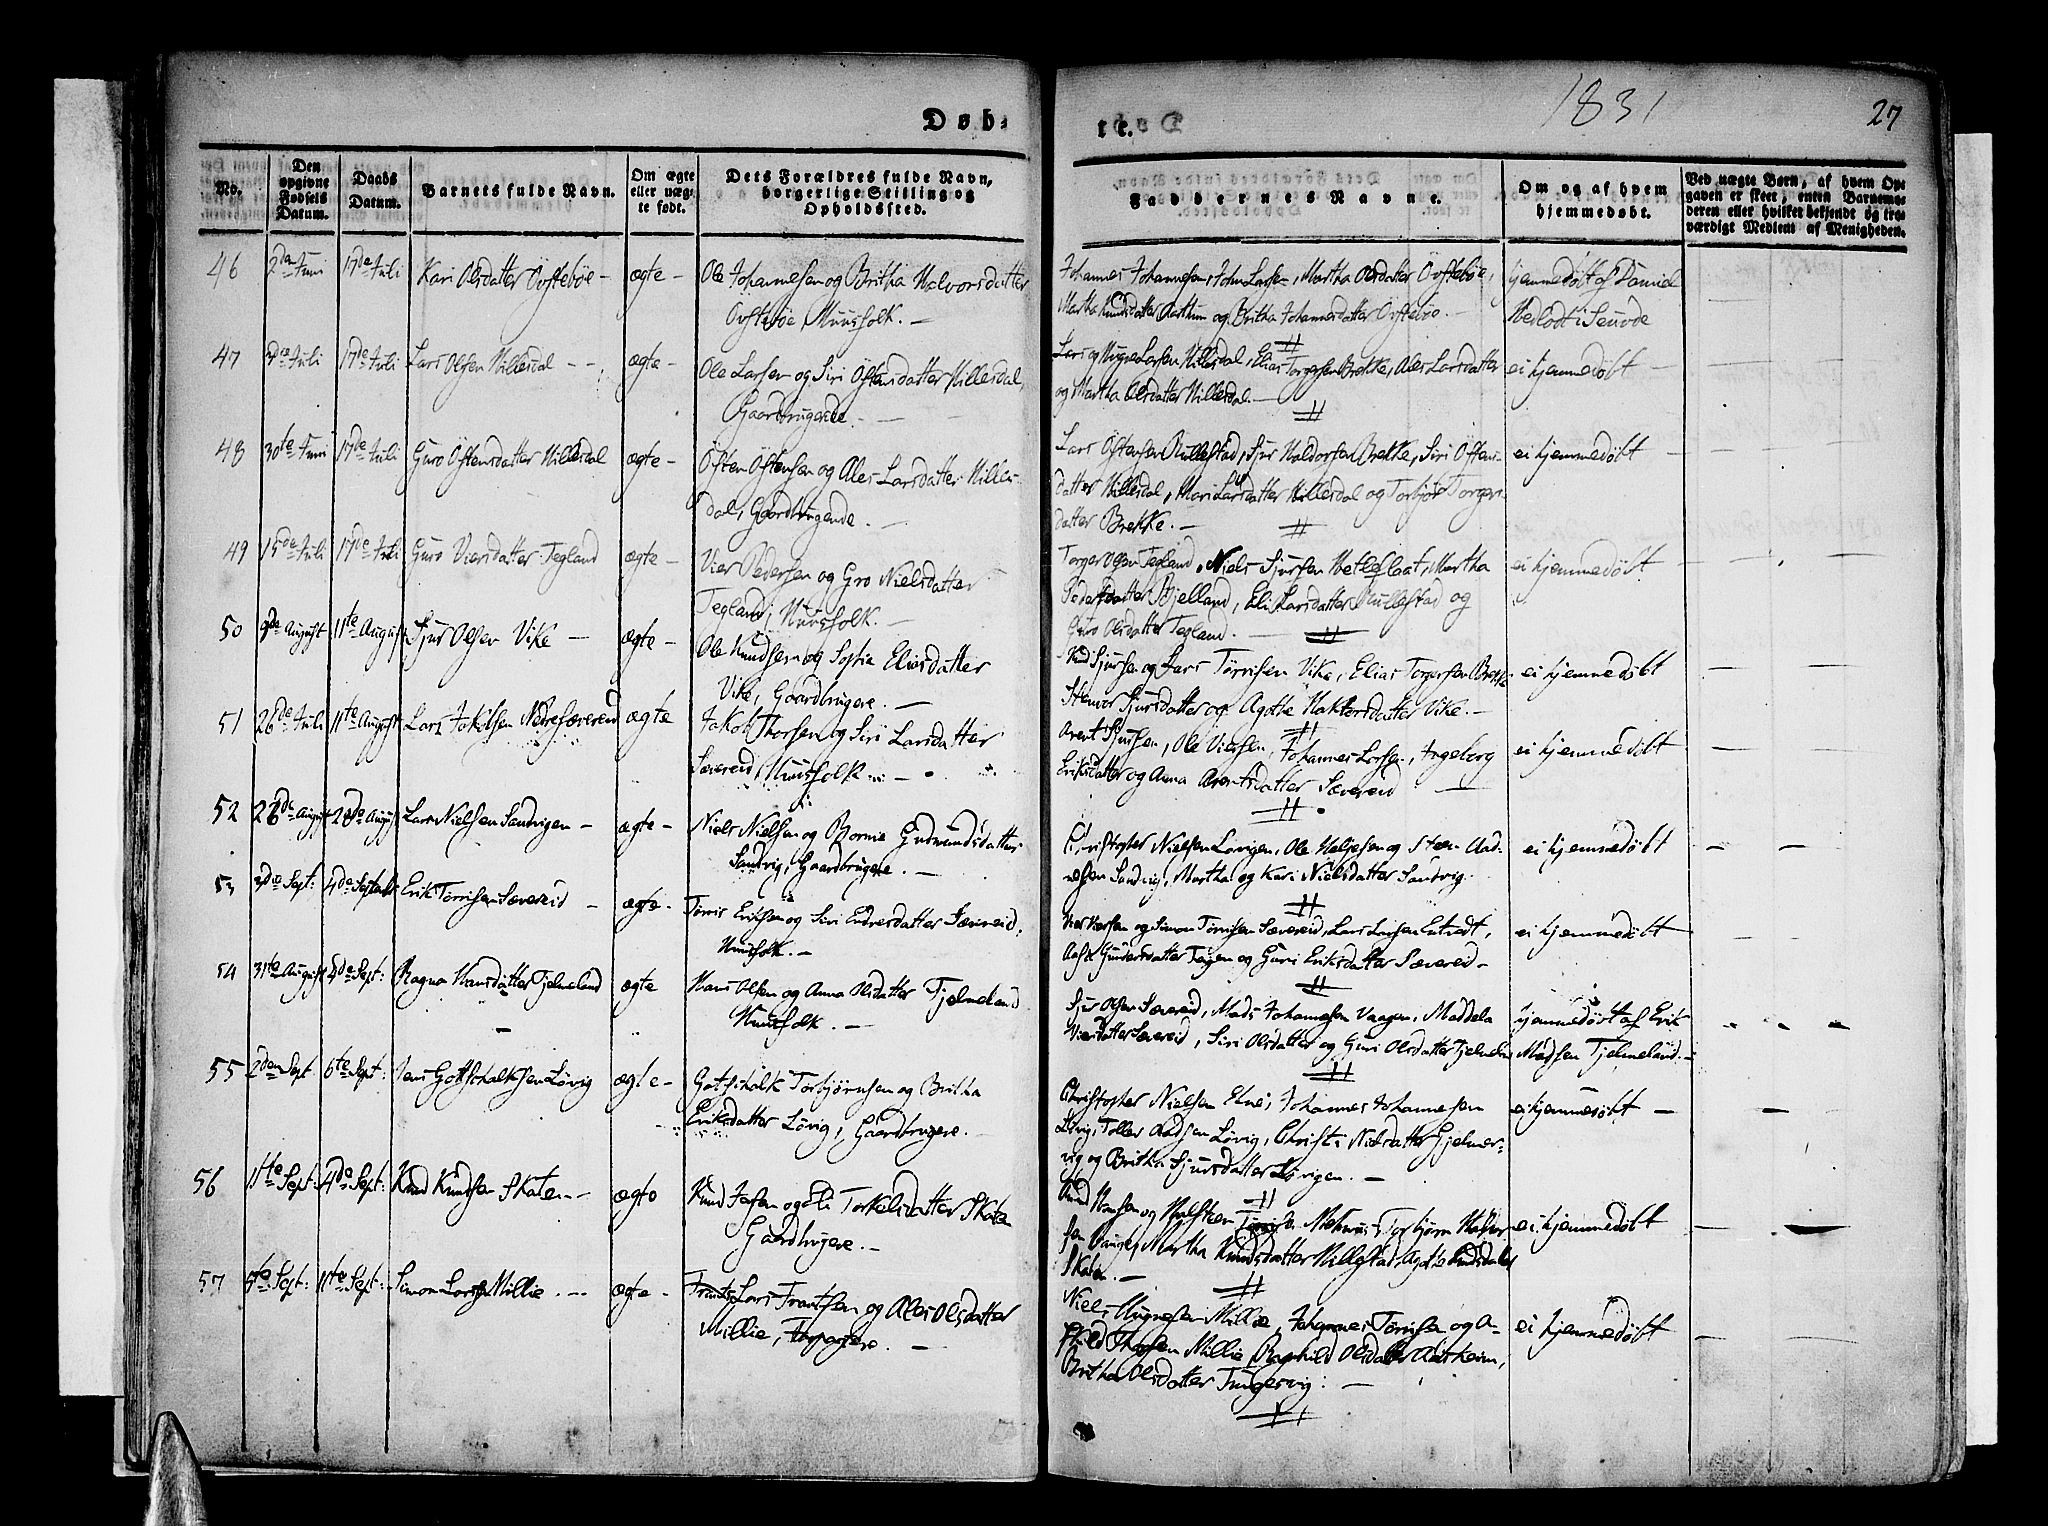 Døb-
te.
1831
27
No.
Den opgivne Fødsels Datum.
Daabs Datum.
Barnets fulde Navn.
Om ægte eller uægte født.
Dets Forældres fulde Navn, borgerlige Stilling og Opholdssted.
Faddernes Navne.
Om og af hvem hjemmedøbt.
Ved uægte Børn, af hvem Opgaven er skeet, enten Barnemoderen eller hvilket bekjendt og troværdigt Medlem af Menigheden.
46 2den Juni 17de Juli Kari Olsdatter Øvstebøe - ægte - Ole Johannesen og Britha Halvorsdatter
Øvstebøe, Huusfolk. -
Johannes Johannesen, John Larsen, Martha Olsdatter Øvstebøe,
Martha Knudsdatter Aarthun og Britha Johannesdatter Øvstebøe. -
hjemmedøbt af Daniel
47 Juli 17de Juli Lars Olsen Hillesdal - - ægte - Ole Larsen og Siri Østensdatter Hillesdal,
Gaardbrugende. -
Lars og Mogne Larsen Hillesdal, Elias Torgersen Brekke, Ales Larsdatter
og Martha Olsdatter Hillesdal. -
ei hjemmedøbt -
48 30te Juni 17de Juli Guro Østensdatter Hillesdal ægte - Østen Østensen og Ales Larsdatter Hilles-
dal, Gaardbrugende. -
Lars Østensen Mullestad, Sjur Haldorsen Brekke, Siri Østens-
datter Hillesdal, Mari Larsdatter Hillesdal og Torbjør Torgers-
datter Brekke. -
ei hjemmedøbt -
49 15de Juli 17de Juli Guro Viersdatter Tegland ægte - Vier Pedersen og Gro Nielsdatter
Tegland, Huusfolk. -
Torger Olsen Tegland, Niels Sjursen Hetleflaat, Martha
Pedersdatter Bjelland, Eli Larsdatter Mullestad og
Guro Olsdatter Tegland. -
ei hjemmedøbt -
50 August 11te August Sjur Olsen Vike - ægte - Ole Knudsen og Sophie Eliasdatter
Vike, Gaardbrugere. -
Knud Sjursen og Lars Tørrisen Vike, Elias Torgersen Brekke
Stenvor Sjursdatter og Agothe Vike. -
ei hjemmedøbt
51 26de Juli 11te August Lars Jakobsen Nedresævereid ægte Jakob Thorsen og Siri Larsdatter
Sævereid, Huusfolk -
Arent Sjursen, Ole Viersen, Johannes Larsen, Ingeborg
Eriksdatter og Anna Arentsdatter Sævereid -
ei hjemmedøbt
52 August August Lars Nielsen Sandvigen - ægte - Niels Nielsen og Gudmundsdatter
Sandvig, Gaardbrugere. -
Christopher Nielsen Løvigen, Ole Helgesen og Steen Aad-
nesen Sandvig, Martha og Kari Nielsdatter Sandvig.
ei hjemmedøbt
53 Sept: 4de Erik Tørrisen Sævereid - ægte - Tørris Eriksen og Siri Endresdatter Sævereid,
Huusfolk. -
Vier Viersen og Simon Tørrisen Sævereid, Lars Larsen
Gundersdatter Teigen og Guri Eriksdatter Sævereid -
ei hjemmedøbt
54 31te August 4de Sept: Ragna Hansdatter Tjelmeland ægte Hans Olsen og Anna Olsdatter Tjelmeland
Huusfolk. -
Sjur Olsen Sævereid, Mads Johannesen Vaagen, Maddela
Viersdatter Sævereid, Siri Olsdatter og Guri Olsdatter
hjemmedøbt af Erik
Madsen Tjelmeland. -
55 2den Sept 6te Sept: Jens Gottschalksen Løvig ægte - Gotschalk Torbjørnsen og Britha
Eriksdatter Løvig, Gaardbrugere.
Christopher Nielsen Elne, Johannes Johannesen
Løvig, Tollev Aadsen Løvig, Nielsdatter Gjelmer-
vig og Britha Sjursdatter Løvigen. -
ei hjemmedøbt -
56 1te Sept: 4de Sept: Knud Knudsen Skaten - - ægte Knud og Eli Torkelsdatter Skaten
Gaardbrugere. -
Knud Hansen og Halsteen Torbjørn
Martha Knudsdatter
Skaten. -
ei hjemmedøbt
57 5te Sept: 11te Sept: Simon Larsen Millie - ægte - Lars Frantsen og Ales Olsdatter
Millie, -
Niels Mognesen Millie, Johannes Tørrisen og A-
Thorsen Millie, Ragnhild Olsdatter Aarheim,
Britha Olsdatter Tungesvig: -
ei hjemmedøbt